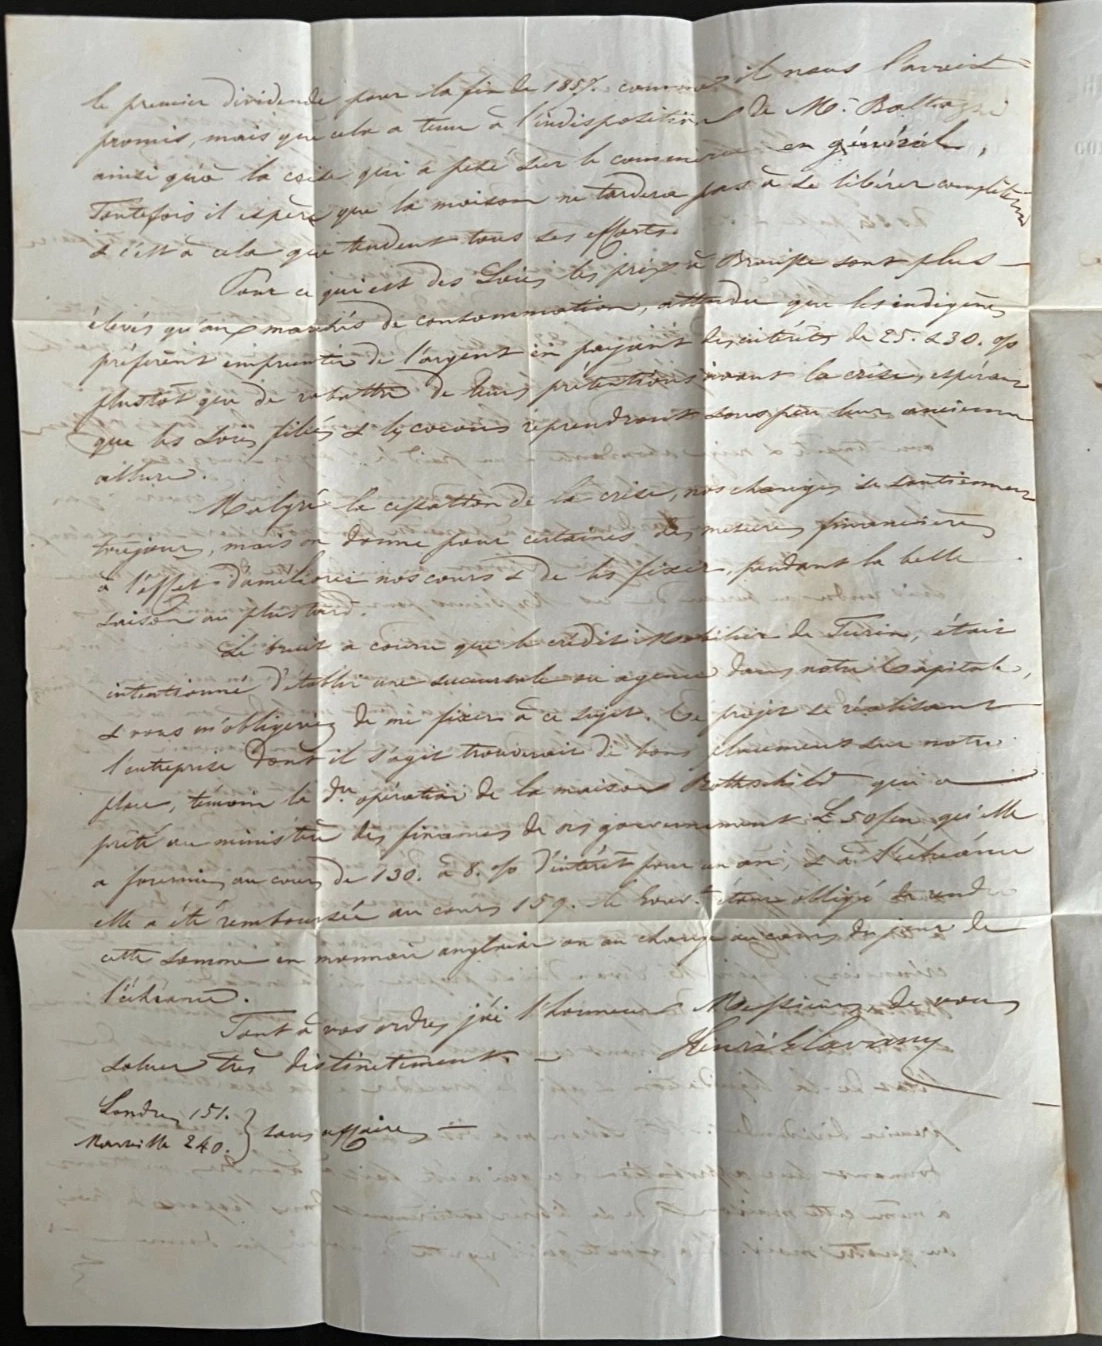 le premier dividende pour la fin de 1857. comme il nous l'avait
promis, mais que cela a tenu à l'indisposition de Mr. Baltazzi
ainsi qu'à la crise qui a pesé sur le commerce en général,
Toutefois il espère que la maison ne tardera pas à se libérer complètem
& c'est à cela que tendent tous ses efforts.
Pour ce qui est des Soies les prix à Brousse sont plus
élevés qu'aux marchés de consommation, attendu que les indigènes
préfèrent emprunter de l'argent en payant des intérêts de 25. à 30. %
plustôt que de rabattre de leurs prétentions avant la crise, espérant
que les soies filées & les cocons reprendront sous peu leur ancienne
allure.
Malgré la cessation de la crise, nos changes se soutiennent
toujours, mais on donne pour certaines des mesures financières
à l'effet d'améliorer nos cours & de les fixer, pendant la belle
saison au plus tard.
Le bruit a couru que le crédit Mobilier de Turin, était
intentionné d'établir une succursale ou agence dans notre Capitale,
& vous m'obligeriez de me fixer à ce sujet. Ce projet se réalisant
l'entreprise dont il s'agit trouverait de bons éléments sur notre
place, temoin la dre. opération de la maison Rothschild qui a
prêté au ministère des finances de ns gouvernement £ 50/m qu'elle
a fournies au cours de 130. à 8. % d'intérêt pour un an, & à l'échéance
elle a été remboursée au cours 159. le Gouvt. étant obligé de rendre
cette somme en monnaie anglaise ou au change au cours du jour de
l'échéance.
Tout à vos ordres j'ai l'honneur Messieurs de vous
saluer très distinctement. —
Henri Glavany
Londres 151. } sans affaires —
Marseille 240.